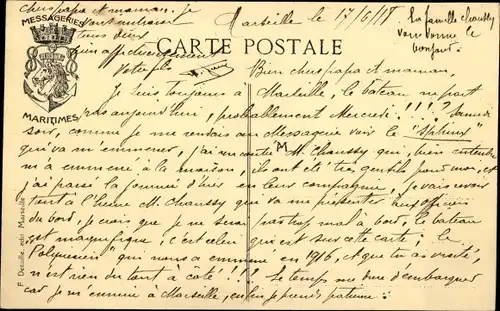 cherspapa et maman. Je
tous deux
bien affectueusement
Votre fils
Marseille le 17/6/18
La famille Chaussy
vous donne le
bonjour.
MESSAGERIES
MARITIMES
CARTE POSTALE
Bien chers papa et maman,
Je suis toujours à Marseille, le bateau ne part
pas aujourd'hui, probablement Mercredi !!!?
soir, comme je me rendais aux Messagerie voir le "Sphinx"
qui va m'emmener, j'ai rencontré M. Chaussy qui, bien entendu
m'a emmené à la maison, ils ont été très gentils pour moi, et
j'ai passé la journée d'hier en leur compagnie, je vais revoir
tantôt à l'heure M. Chaussy qui va me présenter aux officiers
du bord, je crois que je ne serai pas trop mal à bord, le bateau
est magnifique, c'est celui qui est sur cette carte, le
Polynésien qui nous a emmené en 1916, et que tu as visité,
n'est rien du tout à côté !!! Le temps me dure d'embarquer
car je m'ennuie à Marseille, enfin je prends patience !
F. Detaille, édit. Marseille